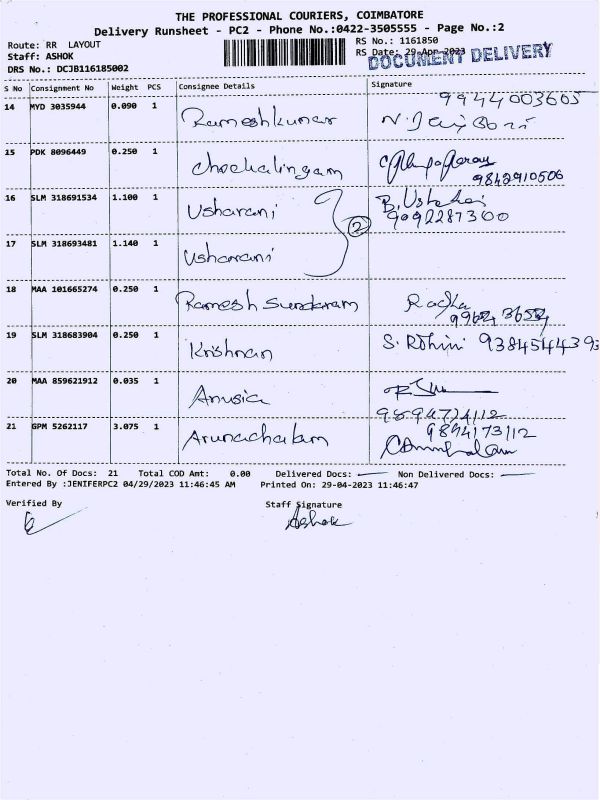 THE PROFESSIONAL COURIERS, COIMBATORE
Delivery Runsheet - PC2 - Phone No.:0422-3505555 - Page No.:2
Route: RR LAYOUT
Staff: ASHOK
DRS No.: DCJB116185002
RS No.: 1161850
RS Date: 29-Apr-2023
DOCUMENT DELIVERY
S No Consignment No Weight PCS Consignee Details Signature
14 MYD 3035944 0.090 1 Rameshkumar 9944003605
15 PDK 8096449 0.250 1 Chockalingam 9842910506
16 SLM 318691534 1.100 1 Usharani 2 9092287300
17 SLM 318693481 1.140 1 Usharani
18 MAA 101665274 0.250 1 Ramesh Sundaram Radha
19 SLM 318683904 0.250 1 Krishnan S. Rohini
20 MAA 859621912 0.035 1 Anusia
21 GPM 5262117 3.075 1 Arunachalam
Total No. Of Docs: 21 Total COD Amt: 0.00 Delivered Docs: Non Delivered Docs:
Entered By :JENIFERPC2 04/29/2023 11:46:45 AM Printed On: 29-04-2023 11:46:47
Verified By Staff Signature
Ashok